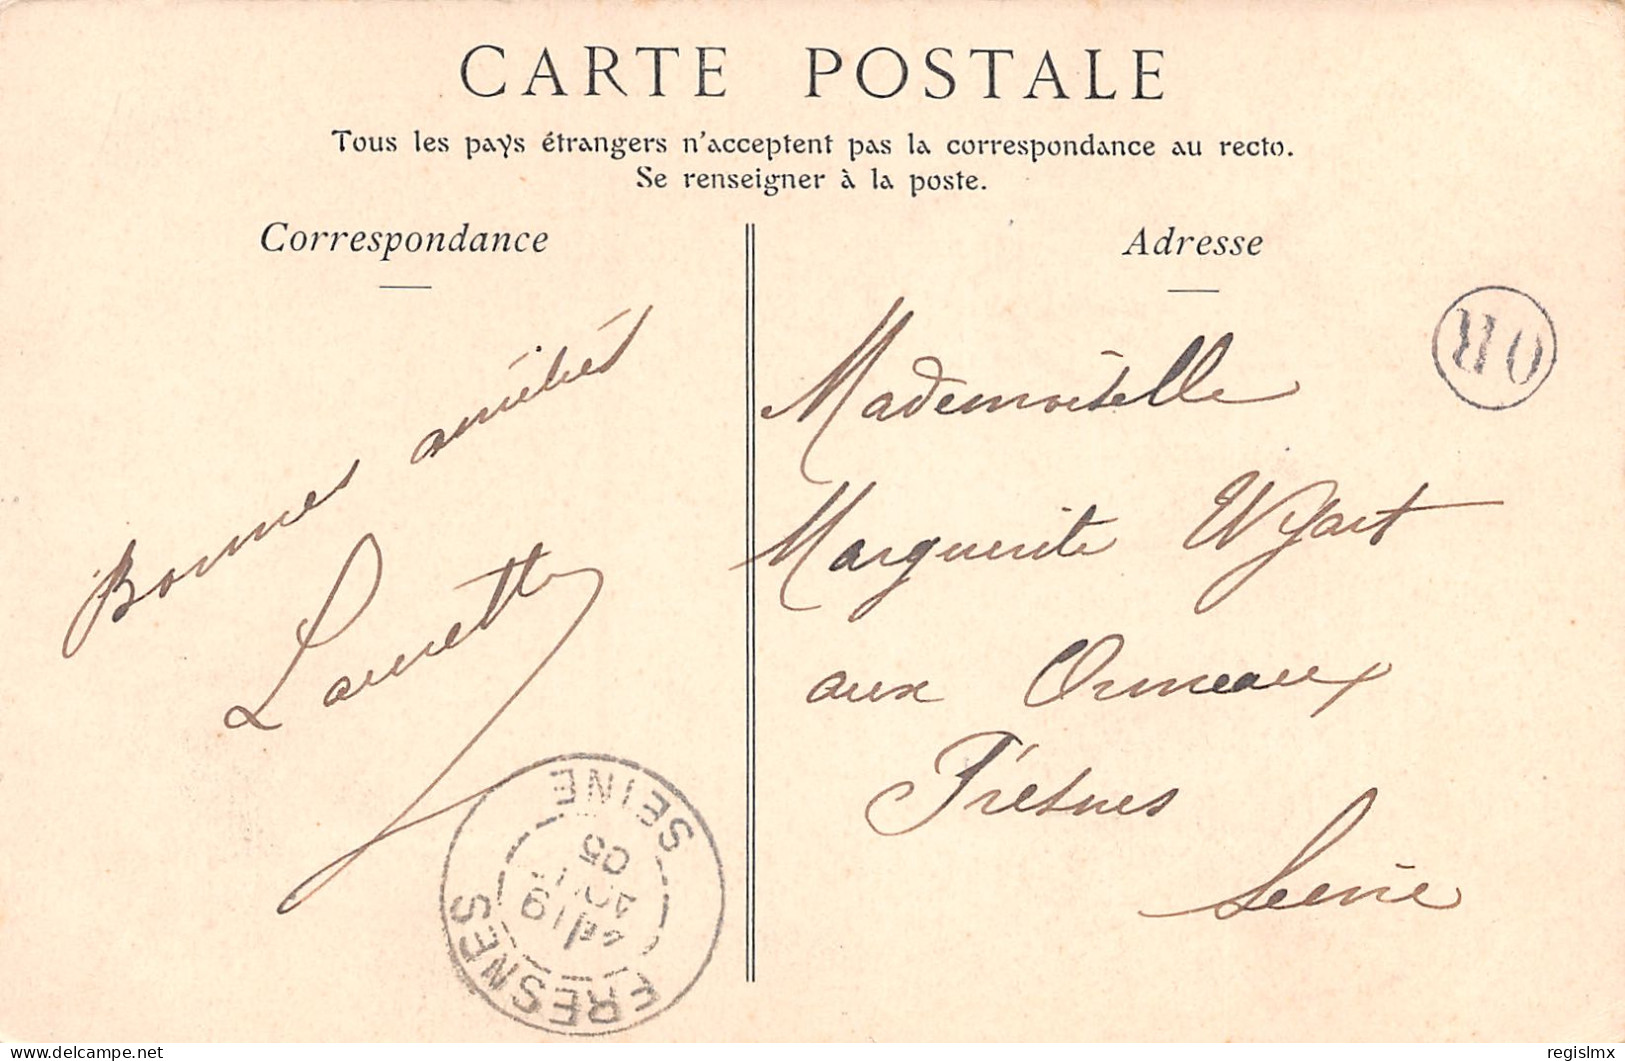 CARTE POSTALE
Tous les pays étrangers n'acceptent pas la correspondance au recto.
Se renseigner à la poste.
Correspondance
Bonnes amitiés
Laurette
Adresse
OR
Mademoiselle
Marguerite Wyart
aux Ormeaux
Fresnes
Seine
FRESNES
SEINE
19
05
delcampe.net
regislmx